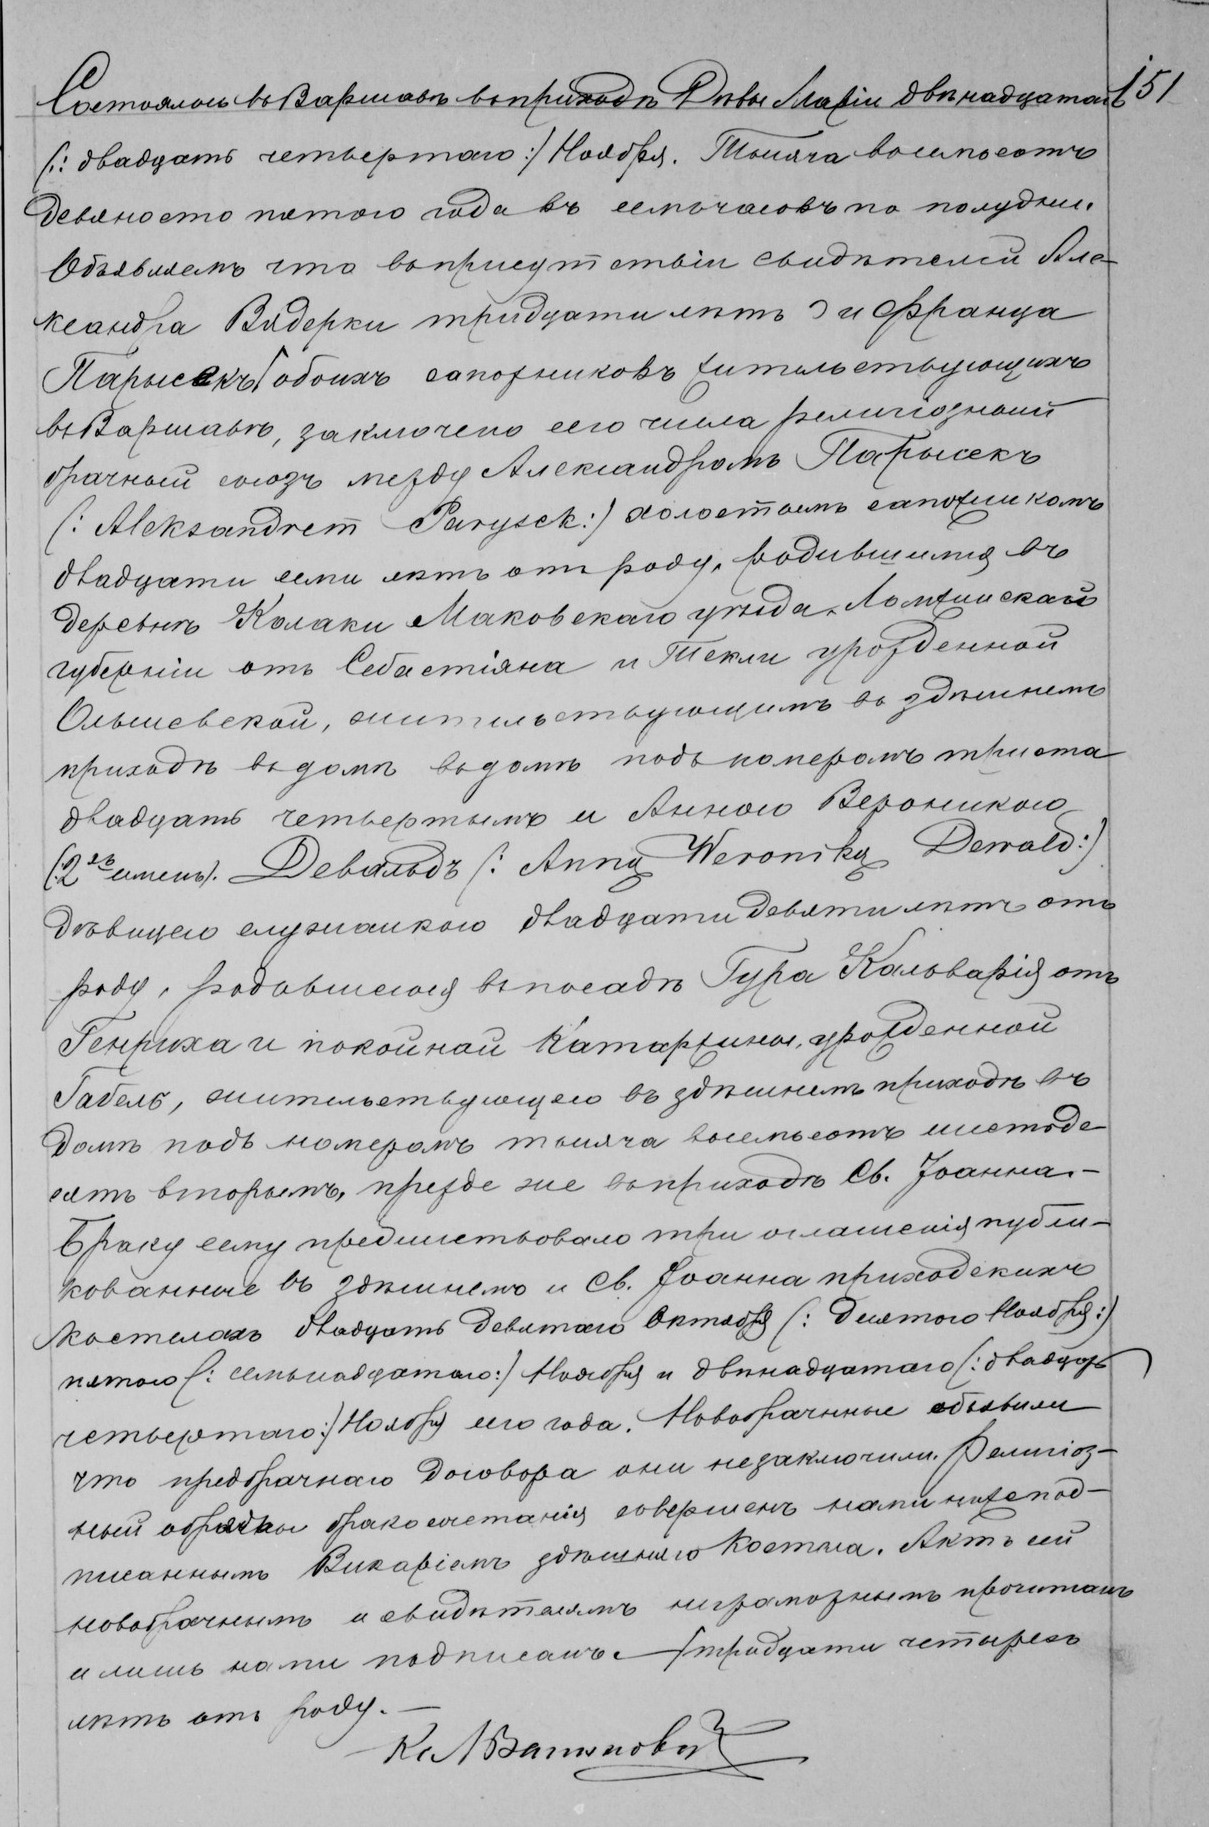 Состоялось въ Варшавѣ въ приходѣ Дѣвы Маріи двѣнадцатаго 151
/: двадцать четвертаго :/ Ноября. Тысяча восемьсотъ
девяносто пятого года въ семь часовъ по полудни.
Объявляемъ что въ присутствіи свидѣтелей Але-
ксандра Вядерки тридцати лѣтъ и Франца
Парысекъ обоихъ сапожниковъ жительствующихъ
въ Варшавѣ, заключено сего числа религіозный
брачный союзъ между Александромъ Парысекъ
/: Aleksandrem Parysek :/ холостымъ сапожникомъ
двадцати семи лѣтъ отъ роду, родившимся въ
деревнѣ Колаки Маковскаго уѣзда, Ломжинской
губерніи отъ Себастіяна и Текли урожденной
Ольшевской, жительствующимъ въ здѣшнемъ
приходѣ въ домѣ въ домѣ подъ номеромъ триста
двадцать четвертымъ и Анною Вероникою
/: 2хъ именъ/. Девальдъ /: Anną Weroniką Dewald :/
дѣвицею служанкою двадцати девяти лѣтъ отъ
роду, родившеюся въ посадѣ Гура Кальварія отъ
Генриха и покойной Катаржины, урожденной
Габель, жительствующею въ здѣшнемъ приходѣ въ
домѣ подъ номеромъ тысяча восемьсотъ шестьде-
сятъ вторымъ, прежде же въ приходѣ Св. Іоанна.-
Браку сему предшествовало три оглашенія публи-
кованные въ здѣшнемъ и Св. Іоанна приходскихъ
костелахъ двадцать девятаго Октября /: десятого Ноября :/
пятого /: семьнадцатаго :/ Ноября и двѣнадцатаго /: двадцать
четвертаго :/ Ноября сего года. Новобрачные объявили
что предбрачнаго договора они незаключили. Религіоз-
ный обряды бракосочетанія совершенъ нами нижепод-
писаннымъ Викаріемъ здѣшняго Костела. Актъ сей
новобрачнымъ и свидѣтелямъ неграмотнымъ прочитанъ
и лишь нами подписанъ. тридцати четырехъ
лѣтъ отъ роду. -